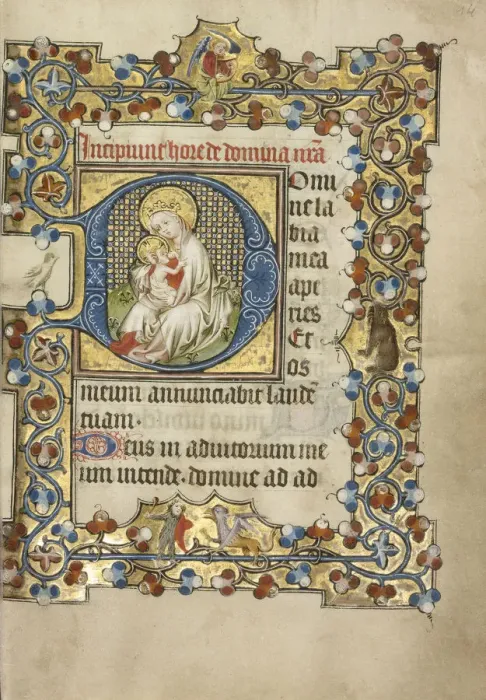 Incipiunt hore de domina nr̄a
Domi
ne la
bia
mea
ape
ries
Et
os
meum annunciabit laudē
tuam.
Deus in adiutorium me
um intende. domine ad ad